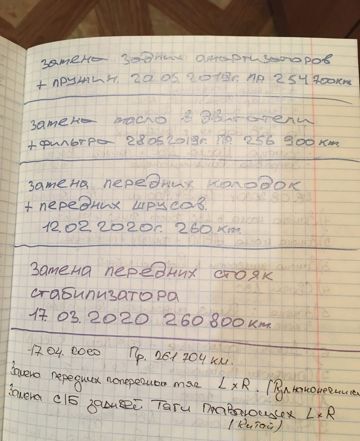 замена задних амортизаторов
+ пружин. 20.05.2019г. пр 254700км
замена масло в двигатели
+ фильтра 28.05.2019г. пр 256 900 км
замена передних колодок
+ передних шрусов.
12.02.2020г. 260 км
Замена передних стояк
стабилизатора
17.03.2020 260 800 км
17.04. 2020 Пр. 261 204 км.
Замена передних поперечных тяг L x R.
Замена с/б задней Тяги плавающих L x R
(Китай)